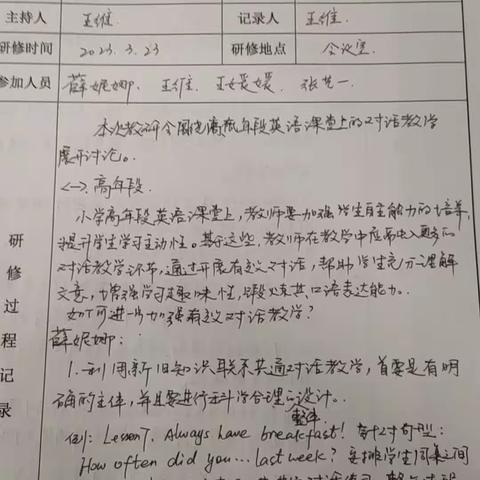 主持人 王维 记录人 王维.
研修时间 2023.3.23 研修地点 会议室.
参加人员 薛妮娜. 王维. 王媛媛. 张艺一.
本次教研会围绕高低年段英语课堂上的对话教学
展开讨论。
<一>. 高年段.
小学高年段英语课堂上,教师要加强学生自主能力的培养,
提升学生学习主动性。基于这些,教师在教学中应
对话教学环节,通过开展有意义对话,帮助学生充分理解
文意,增强学习趣味性,锻炼其口语表达能力.
如何进一步加强有意义对话教学?
薛妮娜:
1. 利用新旧知识联系共通对话教学,首要是有明
确的主体,并且要进行科学合理设计。
整体
例: Lesson 7. Always have breakfast! 针对句型:
How often did you... last week? 安排学生同桌之间
研修过程记录